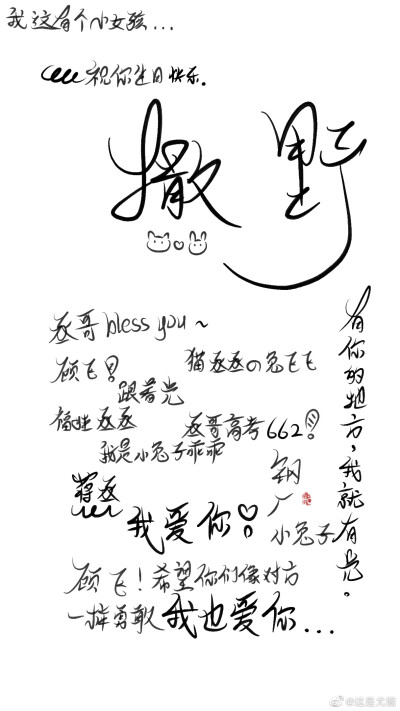 我这有个小女孩...
祝你生日快乐.
撒野
丞哥 bless you ~
顾飞!
猫丞丞の兔飞飞
跟着光
丞哥高考662!
我是小兔子乖乖
蒋丞
我爱你!
钢厂
小兔子
有你的地方,我就有光。
顾飞!希望你们像对方
一样勇敢 我也爱你...
@这是尤猫